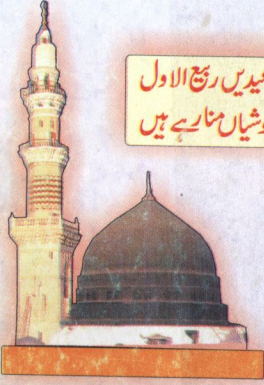 عیدیں ربیع الاول
خوشیاں منا رہے ہیں